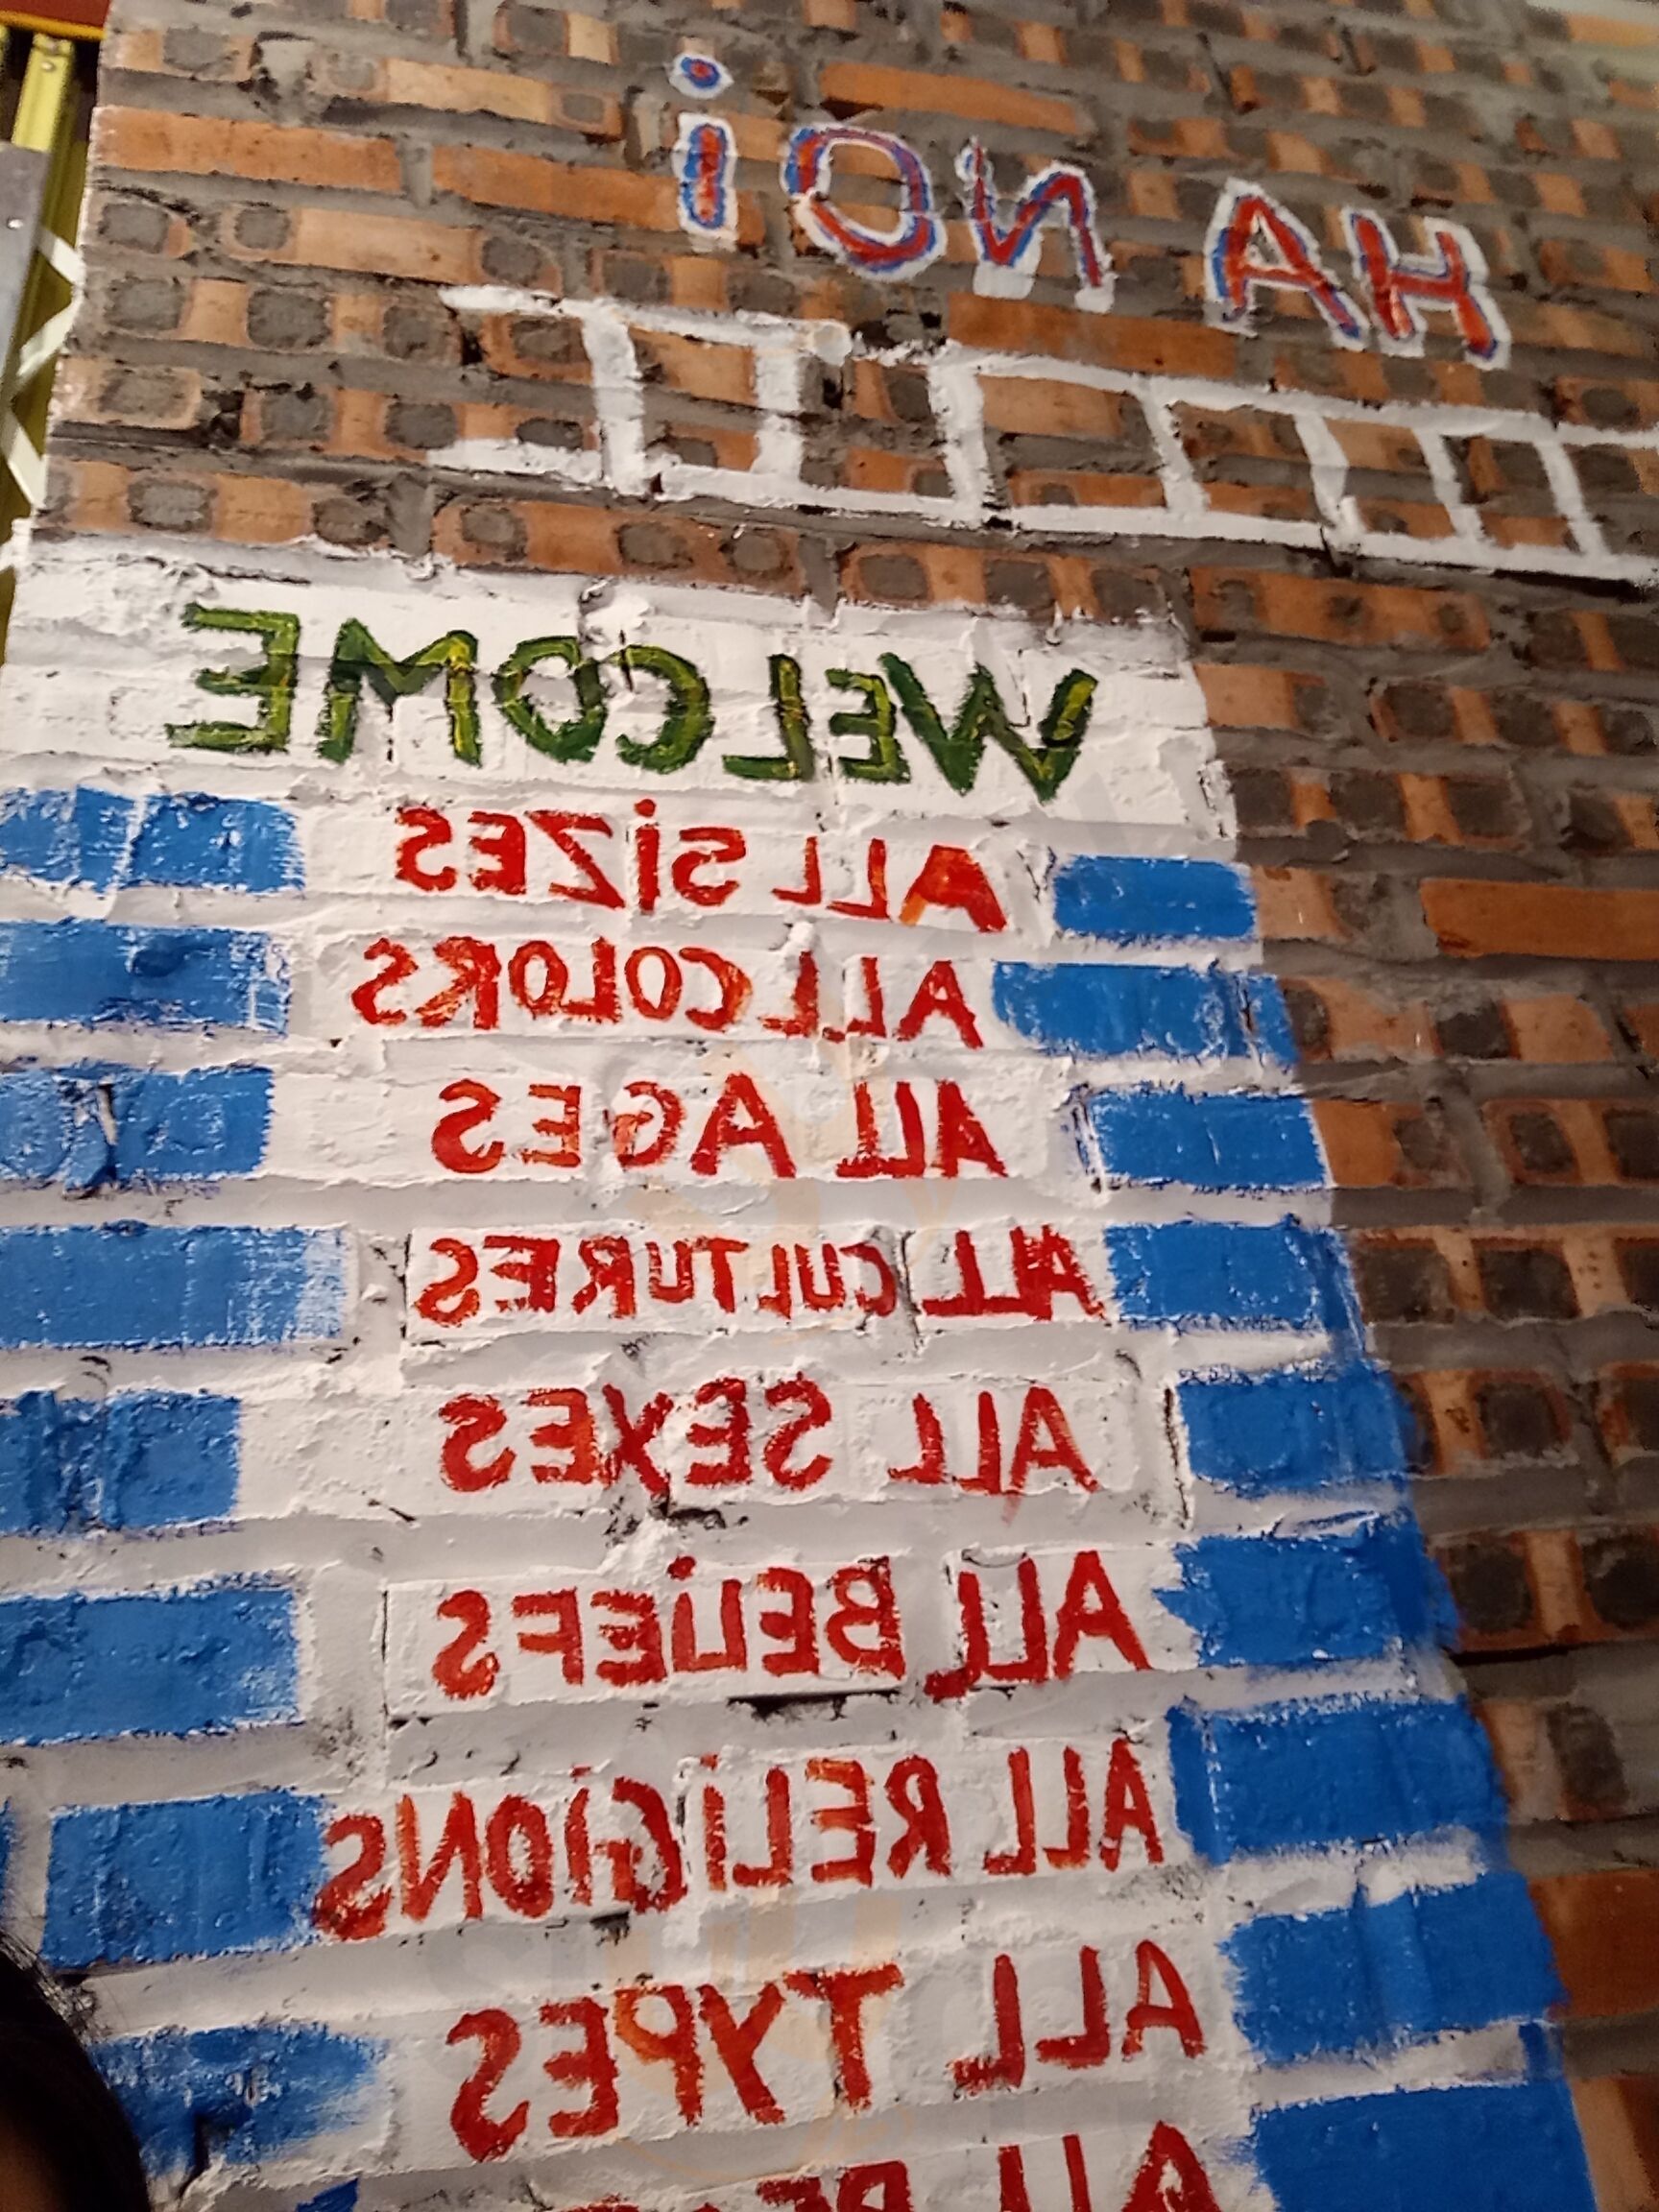 HA NOi
WELCOME
ALL SiZES
ALL COLORS
ALL AGES
ALL CULTURES
ALL SEXES
ALL BELiEFS
ALL RELiGiONS
ALL TYPES
ALL